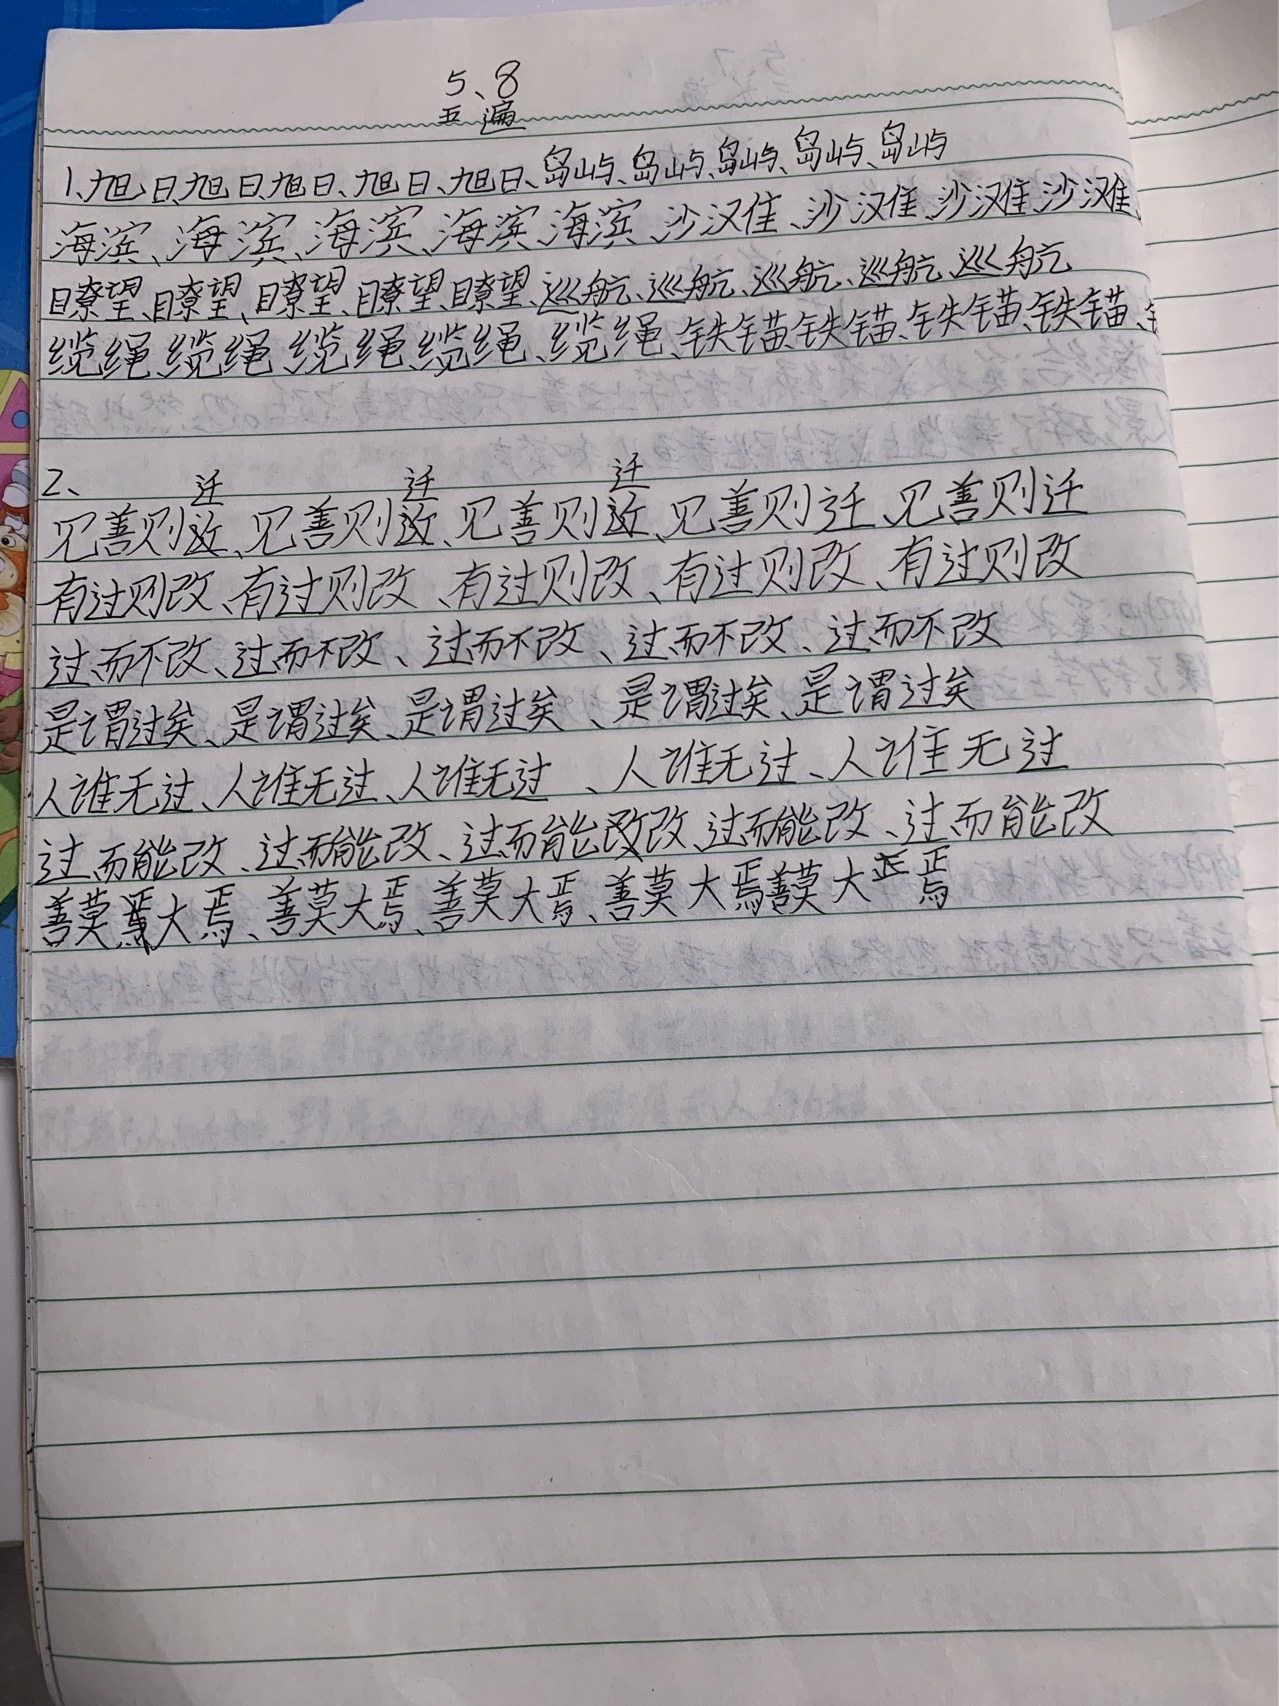 5、8
五遍
1、旭日、旭日、旭日、旭日、旭日、岛屿、岛屿、岛屿、岛屿、岛屿
海滨、海滨、海滨、海滨、海滨、沙滩、沙滩、沙滩、沙滩、
瞭望、瞭望、瞭望、瞭望、瞭望、巡航、巡航、巡航、巡航、巡航
缆绳、缆绳、缆绳、缆绳、缆绳、铁锚、铁锚、铁锚、铁锚、
2、 迁 迁 迁
见善则、见善则、见善则、见善则迁、见善则迁
有过则改、有过则改、有过则改、有过则改、有过则改
过而不改、过而不改、过而不改、过而不改、过而不改
是谓过矣、是谓过矣、是谓过矣、是谓过矣、是谓过矣
人谁无过、人谁无过、人谁无过、人谁无过、人谁无过
过而能改、过而能改、过而能改、过而能改、过而能改
善莫大焉、善莫大焉、善莫大焉、善莫大焉善莫大焉